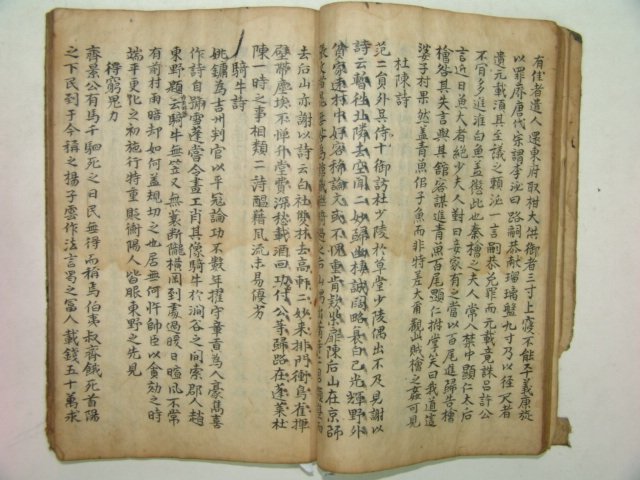 有住者遣人還東府取柑大洪御者三寸上寢不能平義康旋
以罪廢唐代宗謂李泌曰路嗣恭献瑠璃盤九寸乃以徑尺者
遺元載須其至議之賴泌一言嗣恭免罪而元載竟誅呂許公
不肯多進淮白魚盖懲此也秦檜之夫人常入禁中顯仁太后
言近日魚大者絶少夫人對曰妾家有之當以百尾進歸告檜
檜咎其失言與其館客謀進青魚百尾顯仁拊掌笑曰我道這
婆子村果然盖青魚佀子魚而非特差大耳觀此賊檜之姦可見
杜陳詩
范二員外吳侍十御訪杜少陵於草堂少陵偶出不及見謝以
詩云暫往北隣去空聞二妙歸幽棲誠簡略衰白已光輝野外
貧家遠村中好客稀論文或不愧重肯欵柴扉陳后山在京師
去后山亦謝以詩云白社雙林去高軒二妙來排門衝鳥雀揮
壁帶塵埃不憚升堂費深愁載酒回功付公等歸路在蓬萊杜
陳一時之事相類二詩醞藉風流未易優劣
騎牛詩
姚鏞爲吉州判官以平寇論功不數年擢守章貢爲人豪雋喜
作詩自號雪蓬嘗令畫工肖其像騎牛於澗谷之間索郡人趙
東野題云騎牛無笠又無蓑斷隴橫岡到處過暖日暄風不常
有前村雨暗却如何盖規切之也居無何忤帥臣以會劾之時
端平更化之初施行特重貶衡陽人皆服東野之先見
得窮鬼力
齊景公有馬千駟死之日民無得而稱焉伯夷叔齊餓死首陽
之下民到于今稱之揚子雲作法言蜀之富人載錢五十萬求